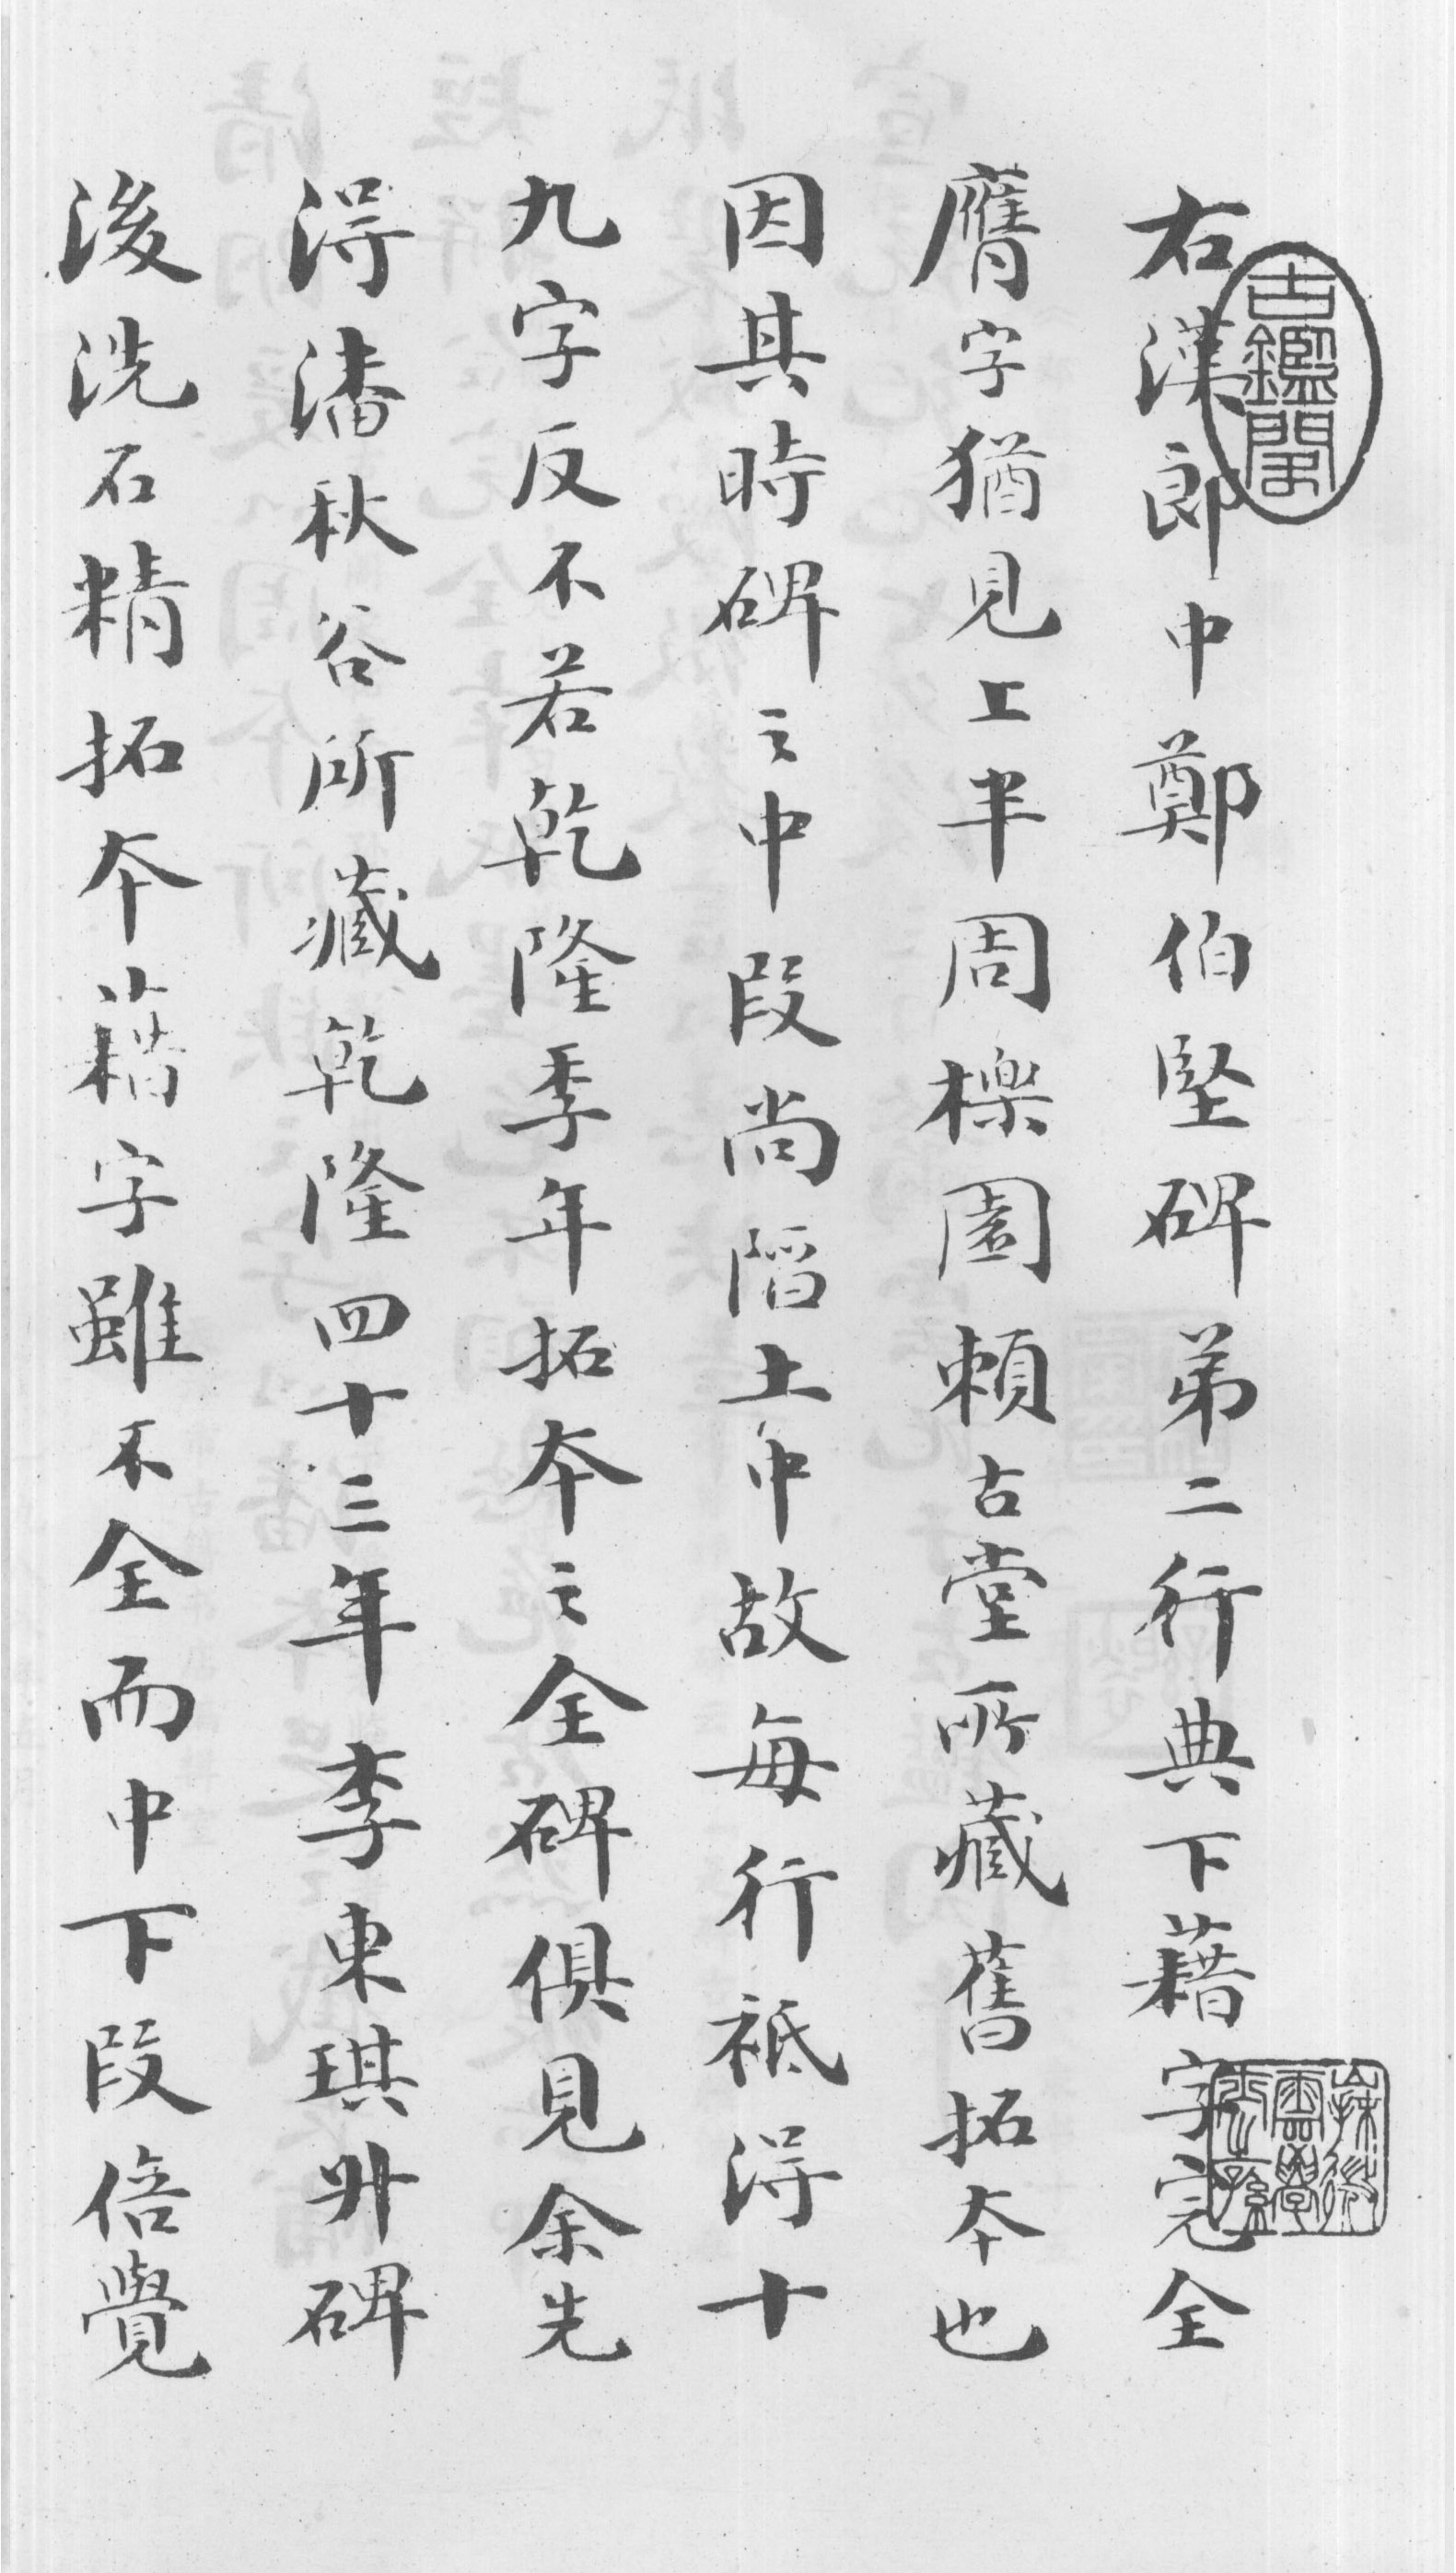 右漢郎中鄭伯堅碑弟二行典下藉字完全
膺字猶見上半周櫟園賴古堂所藏舊拓本也
因其時碑之中段尚陷土中故每行祗得十
九字反不若乾隆季年拓本之全碑俱見余先
得潘秋谷所藏乾隆四十三年李東琪升碑
後洗石精拓本藉字雖不全而中下段倍覺
古鑑閣